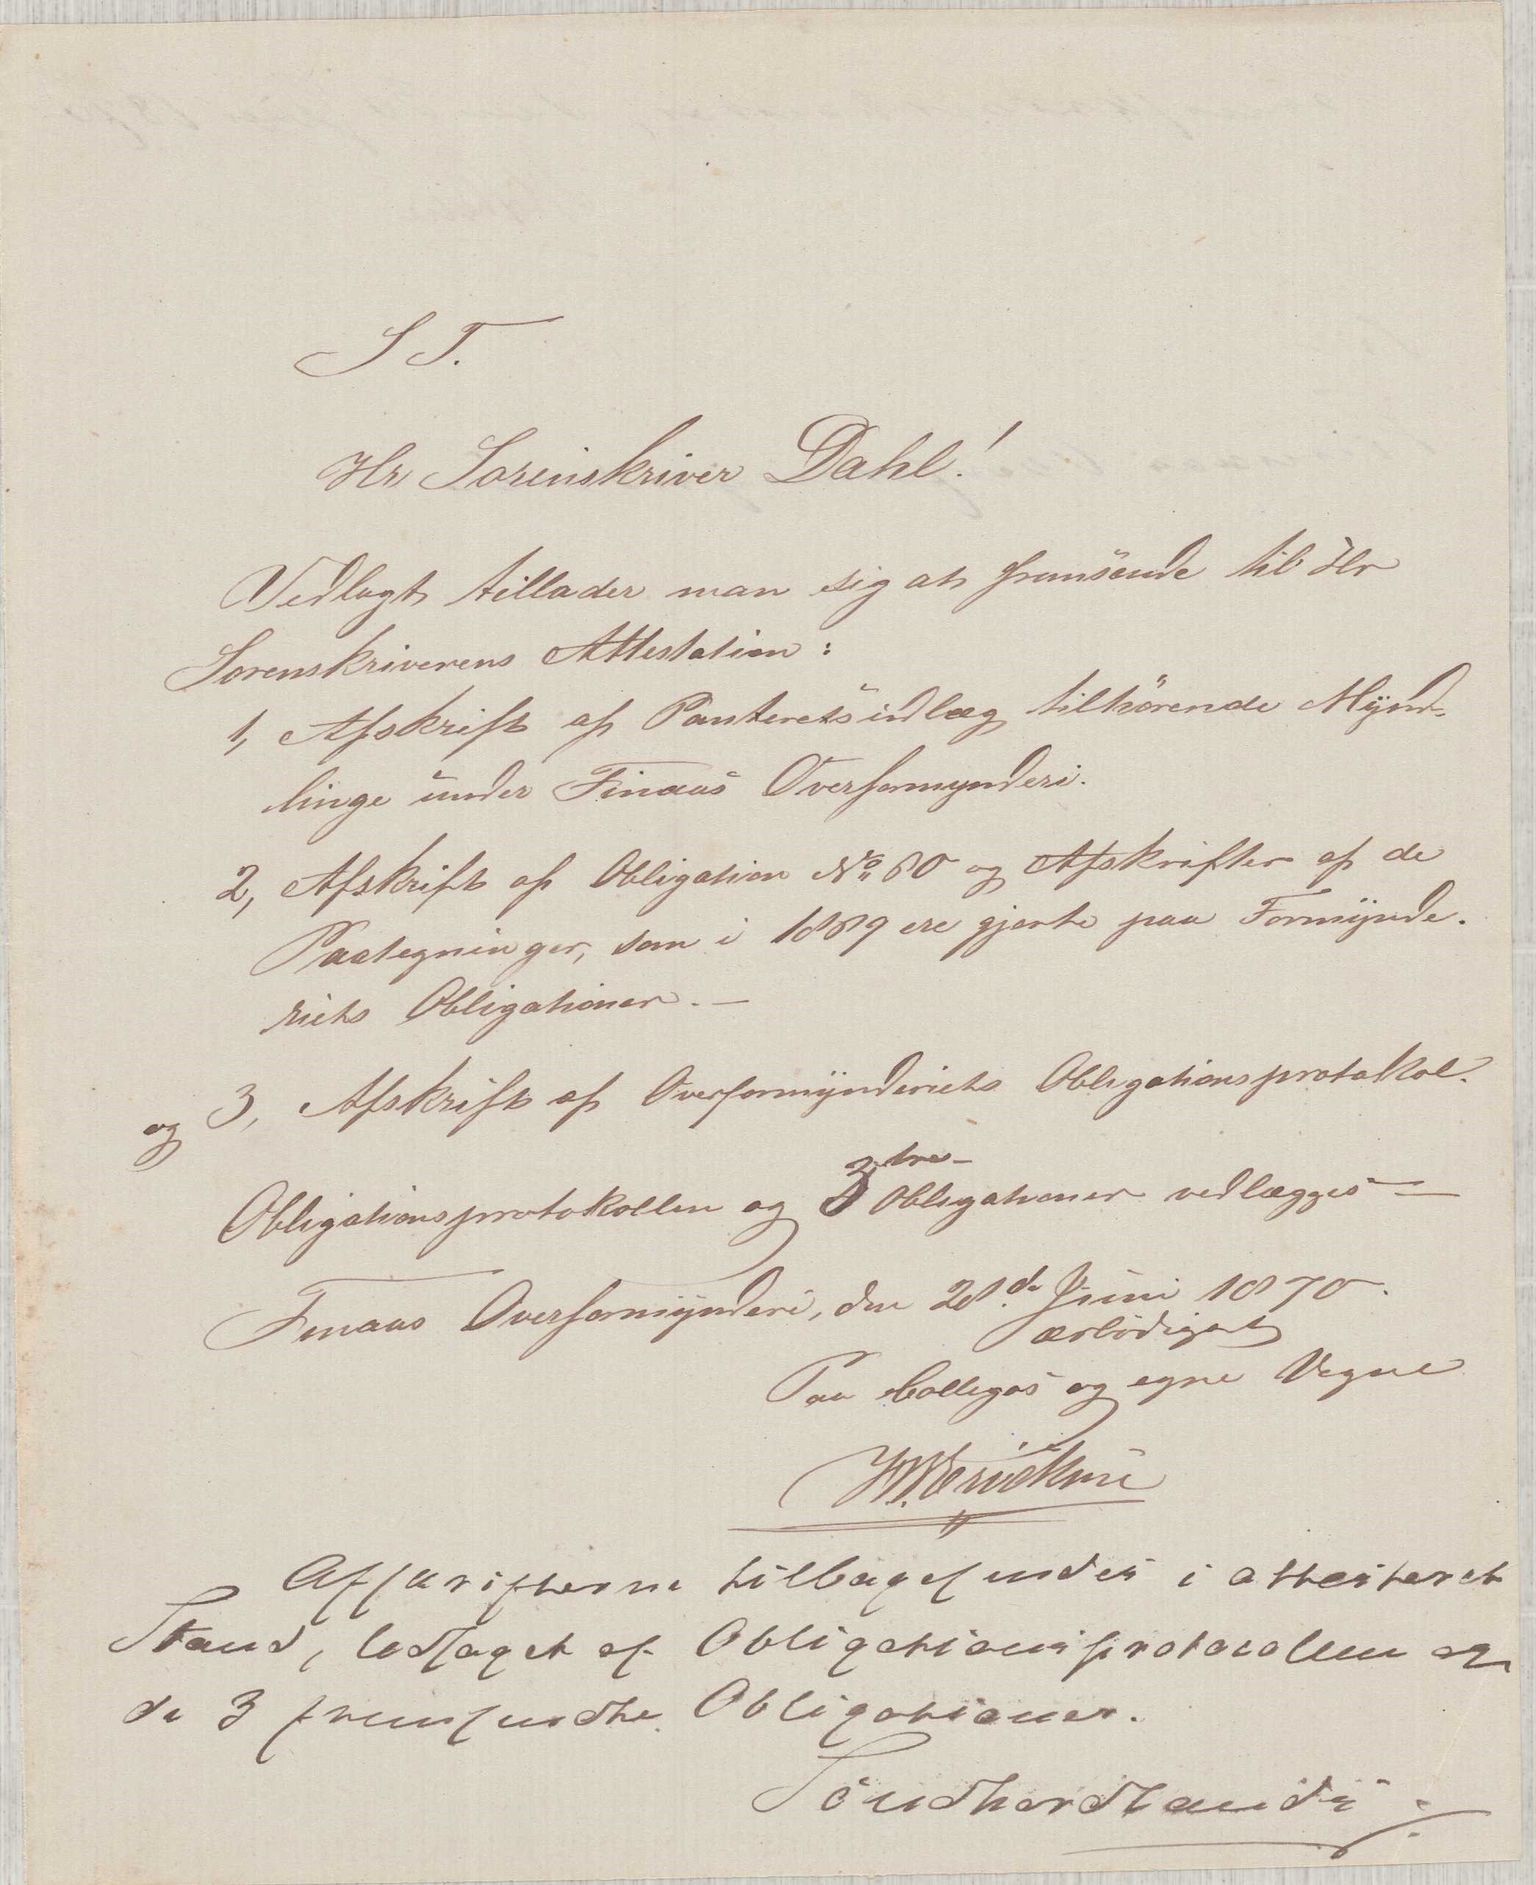 S T.
Hr Sorenskriver Dahl!
Vedlagt tillader man sig at fremsende til Hr
Sorenskriverens Attestation:
1, Afskrift af Panteretsindlæg tilhörende Mynd-
linge under Finaas Overformynderi.
2, Afskrift af Obligation No 80 og Afskrifter af de
Paategninger, som i 1869 ere gjorte paa Formynde-
riets Obligationer. —
og 3, Afskrift af Overformynderiets Obligationsprotokol.
Obligationsprotokollen og 3 tre Obligationer vedlægges —
Finaas Overformynderi, den 28de Juni 1870.
ærbödigst
Paa Collegas og egne Vegne
Afskrifterne tilbagesendes i attesteret
Stand, ledsaget af Obligationsprotocollen og
de 3 fremsendte Obligationer.
Söndhordlands